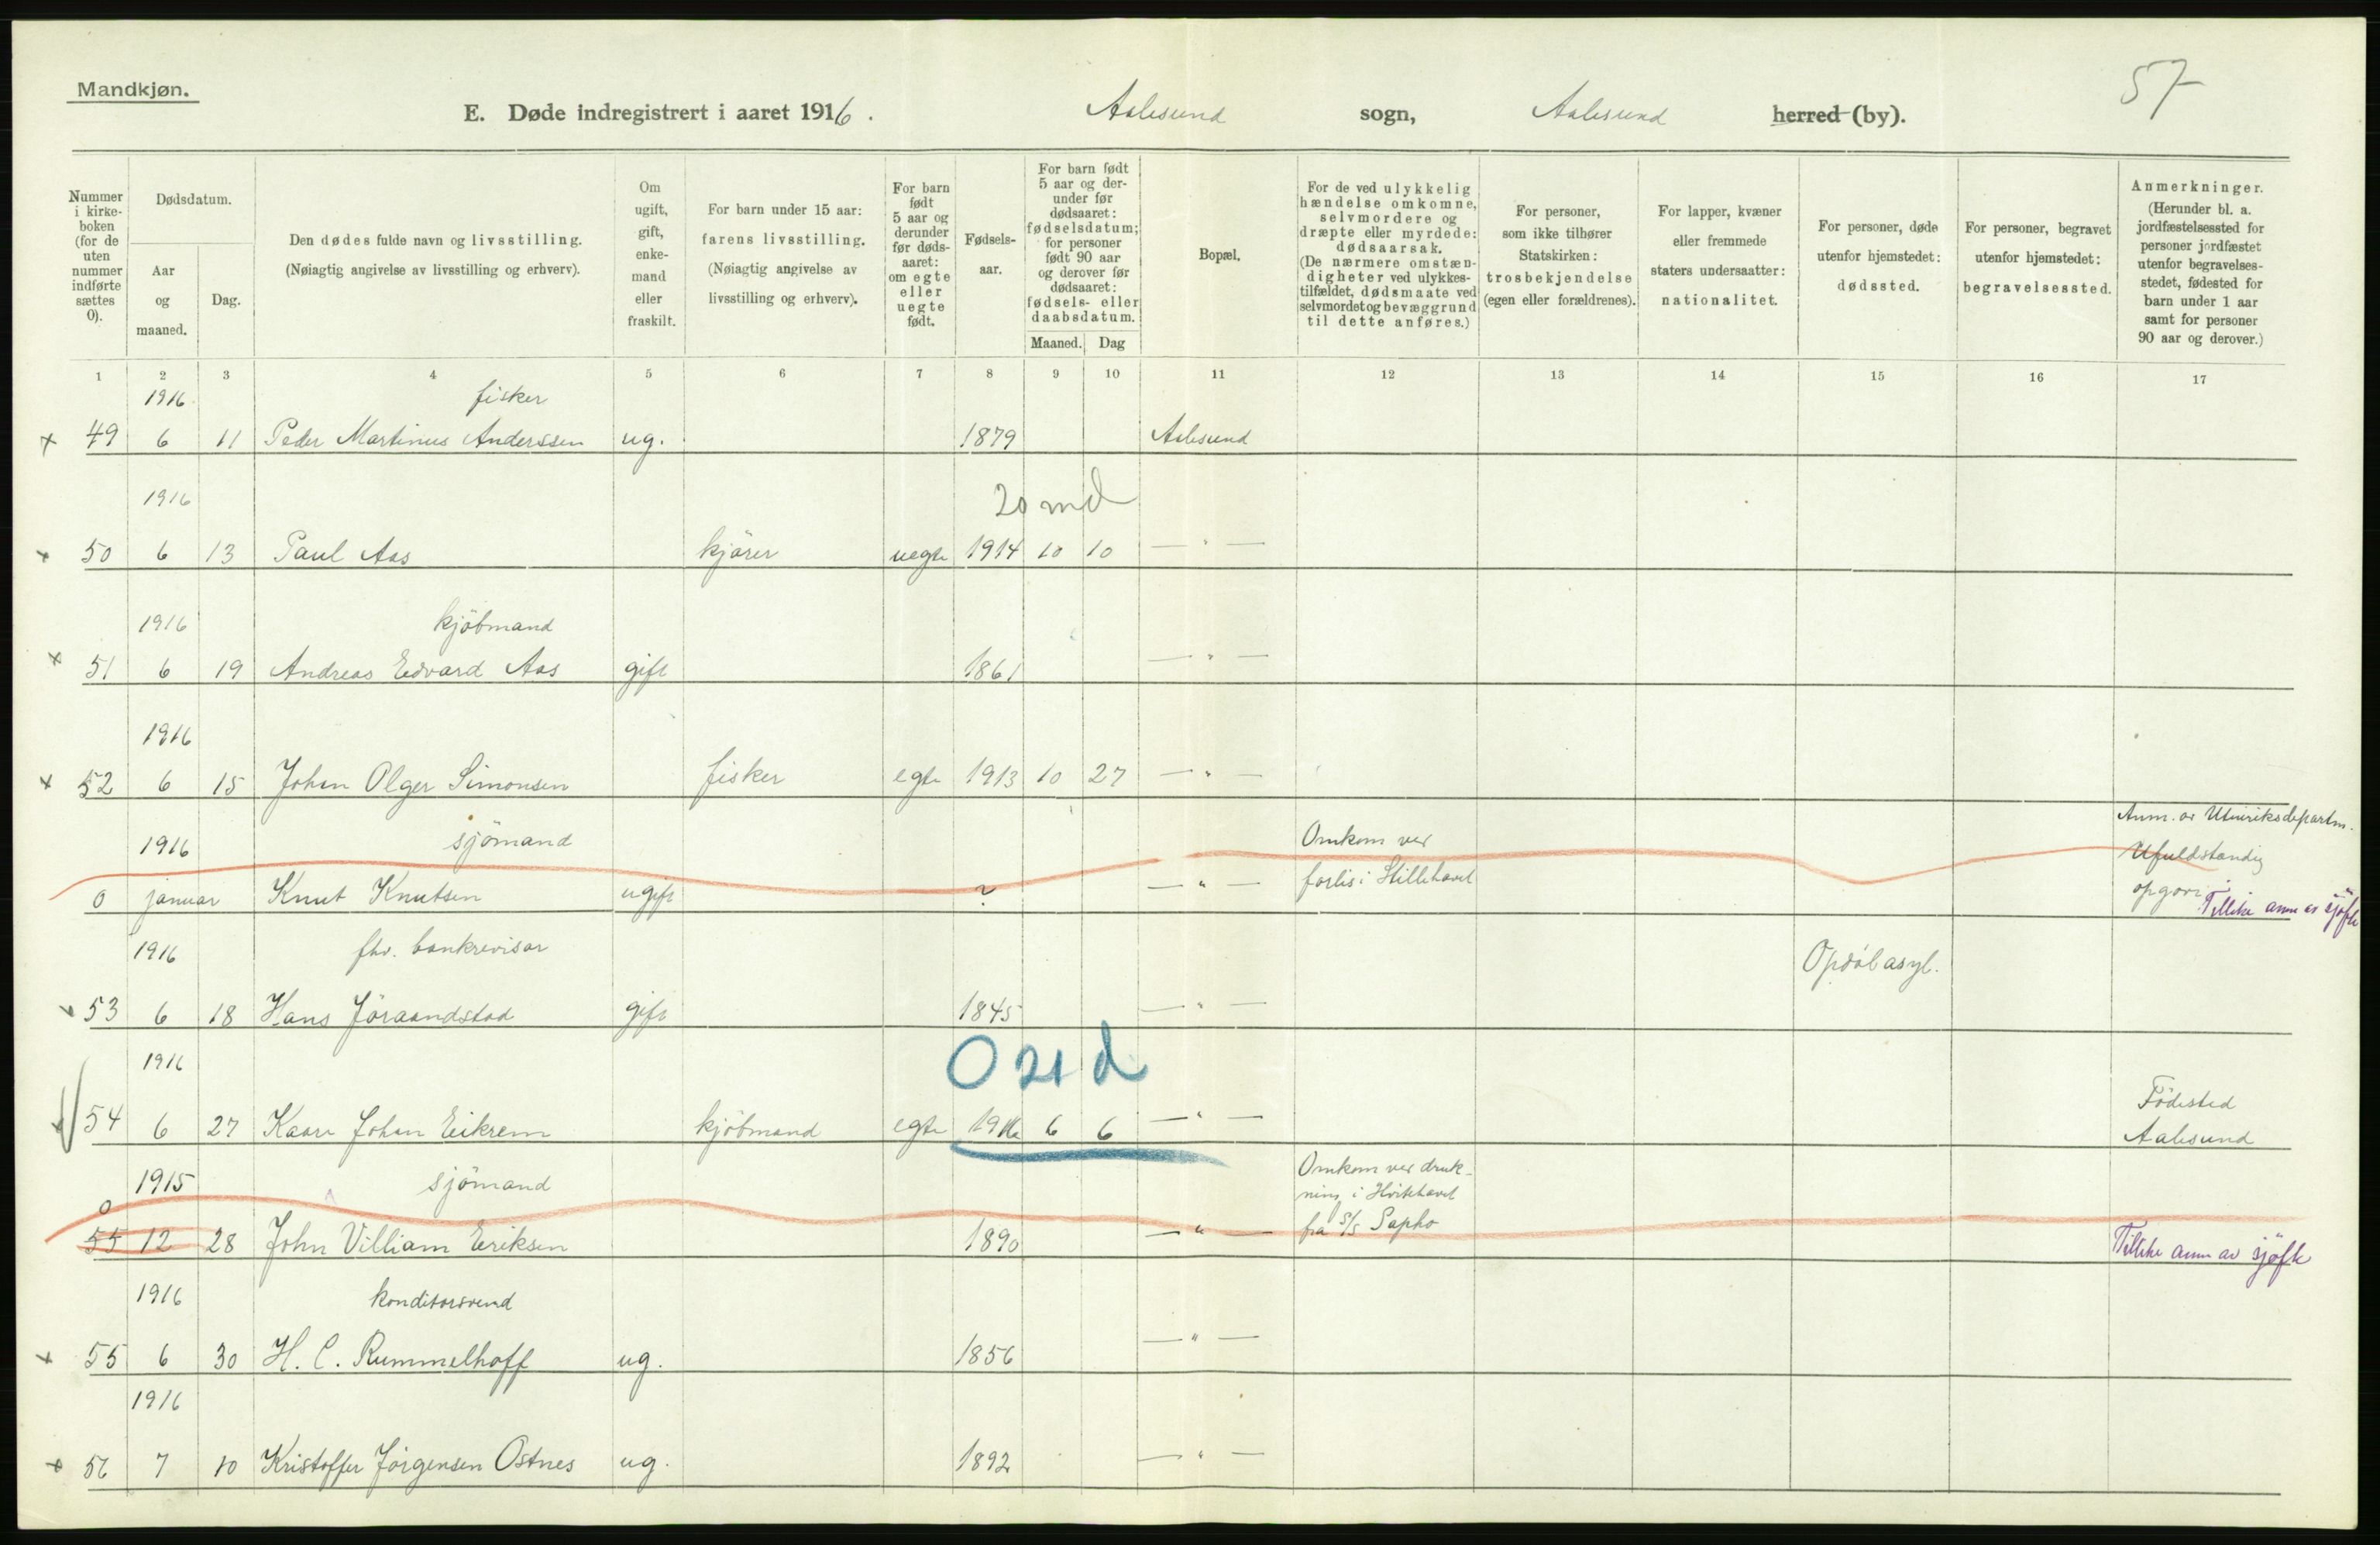 Mandkjøn.
57
E. Døde indregistrert i aaret 1916.
Aalesund sogn, Aalesund herred (by).
Nummer i kirke-boken (for de uten nummer indførte sættes 0).
Dødsdatum.
Aar og maaned.
Dag.
Den dødes fulde navn og livsstilling.
(Nøiagtig angivelse av livsstilling og erhverv).
Om ugift, gift, enke-mand eller fraskilt.
For barn under 15 aar: farens livsstilling.
(Nøiagtig angivelse av livsstilling og erhverv).
For barn født 5 aar og derunder før døds-aaret: om egte eller uegte født.
Fødsels-aar.
For barn født 5 aar og der-under før dødsaaret: fødselsdatum; for personer født 90 aar og derover før dødsaaret: fødsels- eller daabsdatum.
Maaned.
Dag
Bopæl.
For de ved ulykkelig hændelse omkomne, selvmordere og dræpte eller myrdede: dødsaarsak.
(De nærmere omstæn-digheter ved ulykkes-tilfældet, dødsmaate ved selvmordet og bevæggrund til dette anføres.)
For personer, som ikke tilhører Statskirken: trosbekjendelse (egen eller forældrenes).
For lapper, kvæner eller fremmede staters undersaatter: nationalitet.
For personer, døde utenfor hjemstedet: dødssted.
For personer, begravet utenfor hjemstedet: begravelsessted.
Anmerkninger.
(Herunder bl. a. jordfæstelsessted for personer jordfæstet utenfor begravelses-stedet, fødested for barn under 1 aar samt for personer 90 aar og derover.)
1 2 3 4 5 6 7 8 9 10 11 12 13 14 15 16 17
1916 fisker
x 49 6 11 Peder Martinus Anderssen ug. 1879 Aalesund
1916 20 md
x 50 6 13 Paul Aas kjører uegte 1914 10 10 — " —
1916 kjöbmand
x 51 6 19 Andreas Edvard Aas gift 1861 — " —
1916
x 52 6 15 Johan Olger Simonsen fisker egte 1913 10 27 — " —
1916 sjömand Omkom ved Anm. av Utenriksdepartm.
0 januar Knut Knutsen ugift ? — " — forlis i Stillehavet Ufuldstændig opgave Tillike anm av sjöfk
1916 fhv. bankrevisor Opdöl asyl.
53 6 18 Hans Jöraandstad gift 1845 — " —
1916 0 21 d Födested
54 6 27 Kaare Johan Eikrem kjöbmand egte 1916 6 6 — " — Aalesund
1915 sjömand Omkom ved druk-
0 ning i Hvitehavet
55 12 28 John Villiam Eriksen 1890 — " — fra S/S Sapho Tillike anm av sjöfk
1916 konditorsvend
x 55 6 30 H. C. Rummelhoff ug. 1856 — " —
1916
x 56 7 10 Kristoffer Jörgensen Ostnes ug. 1892 — " —